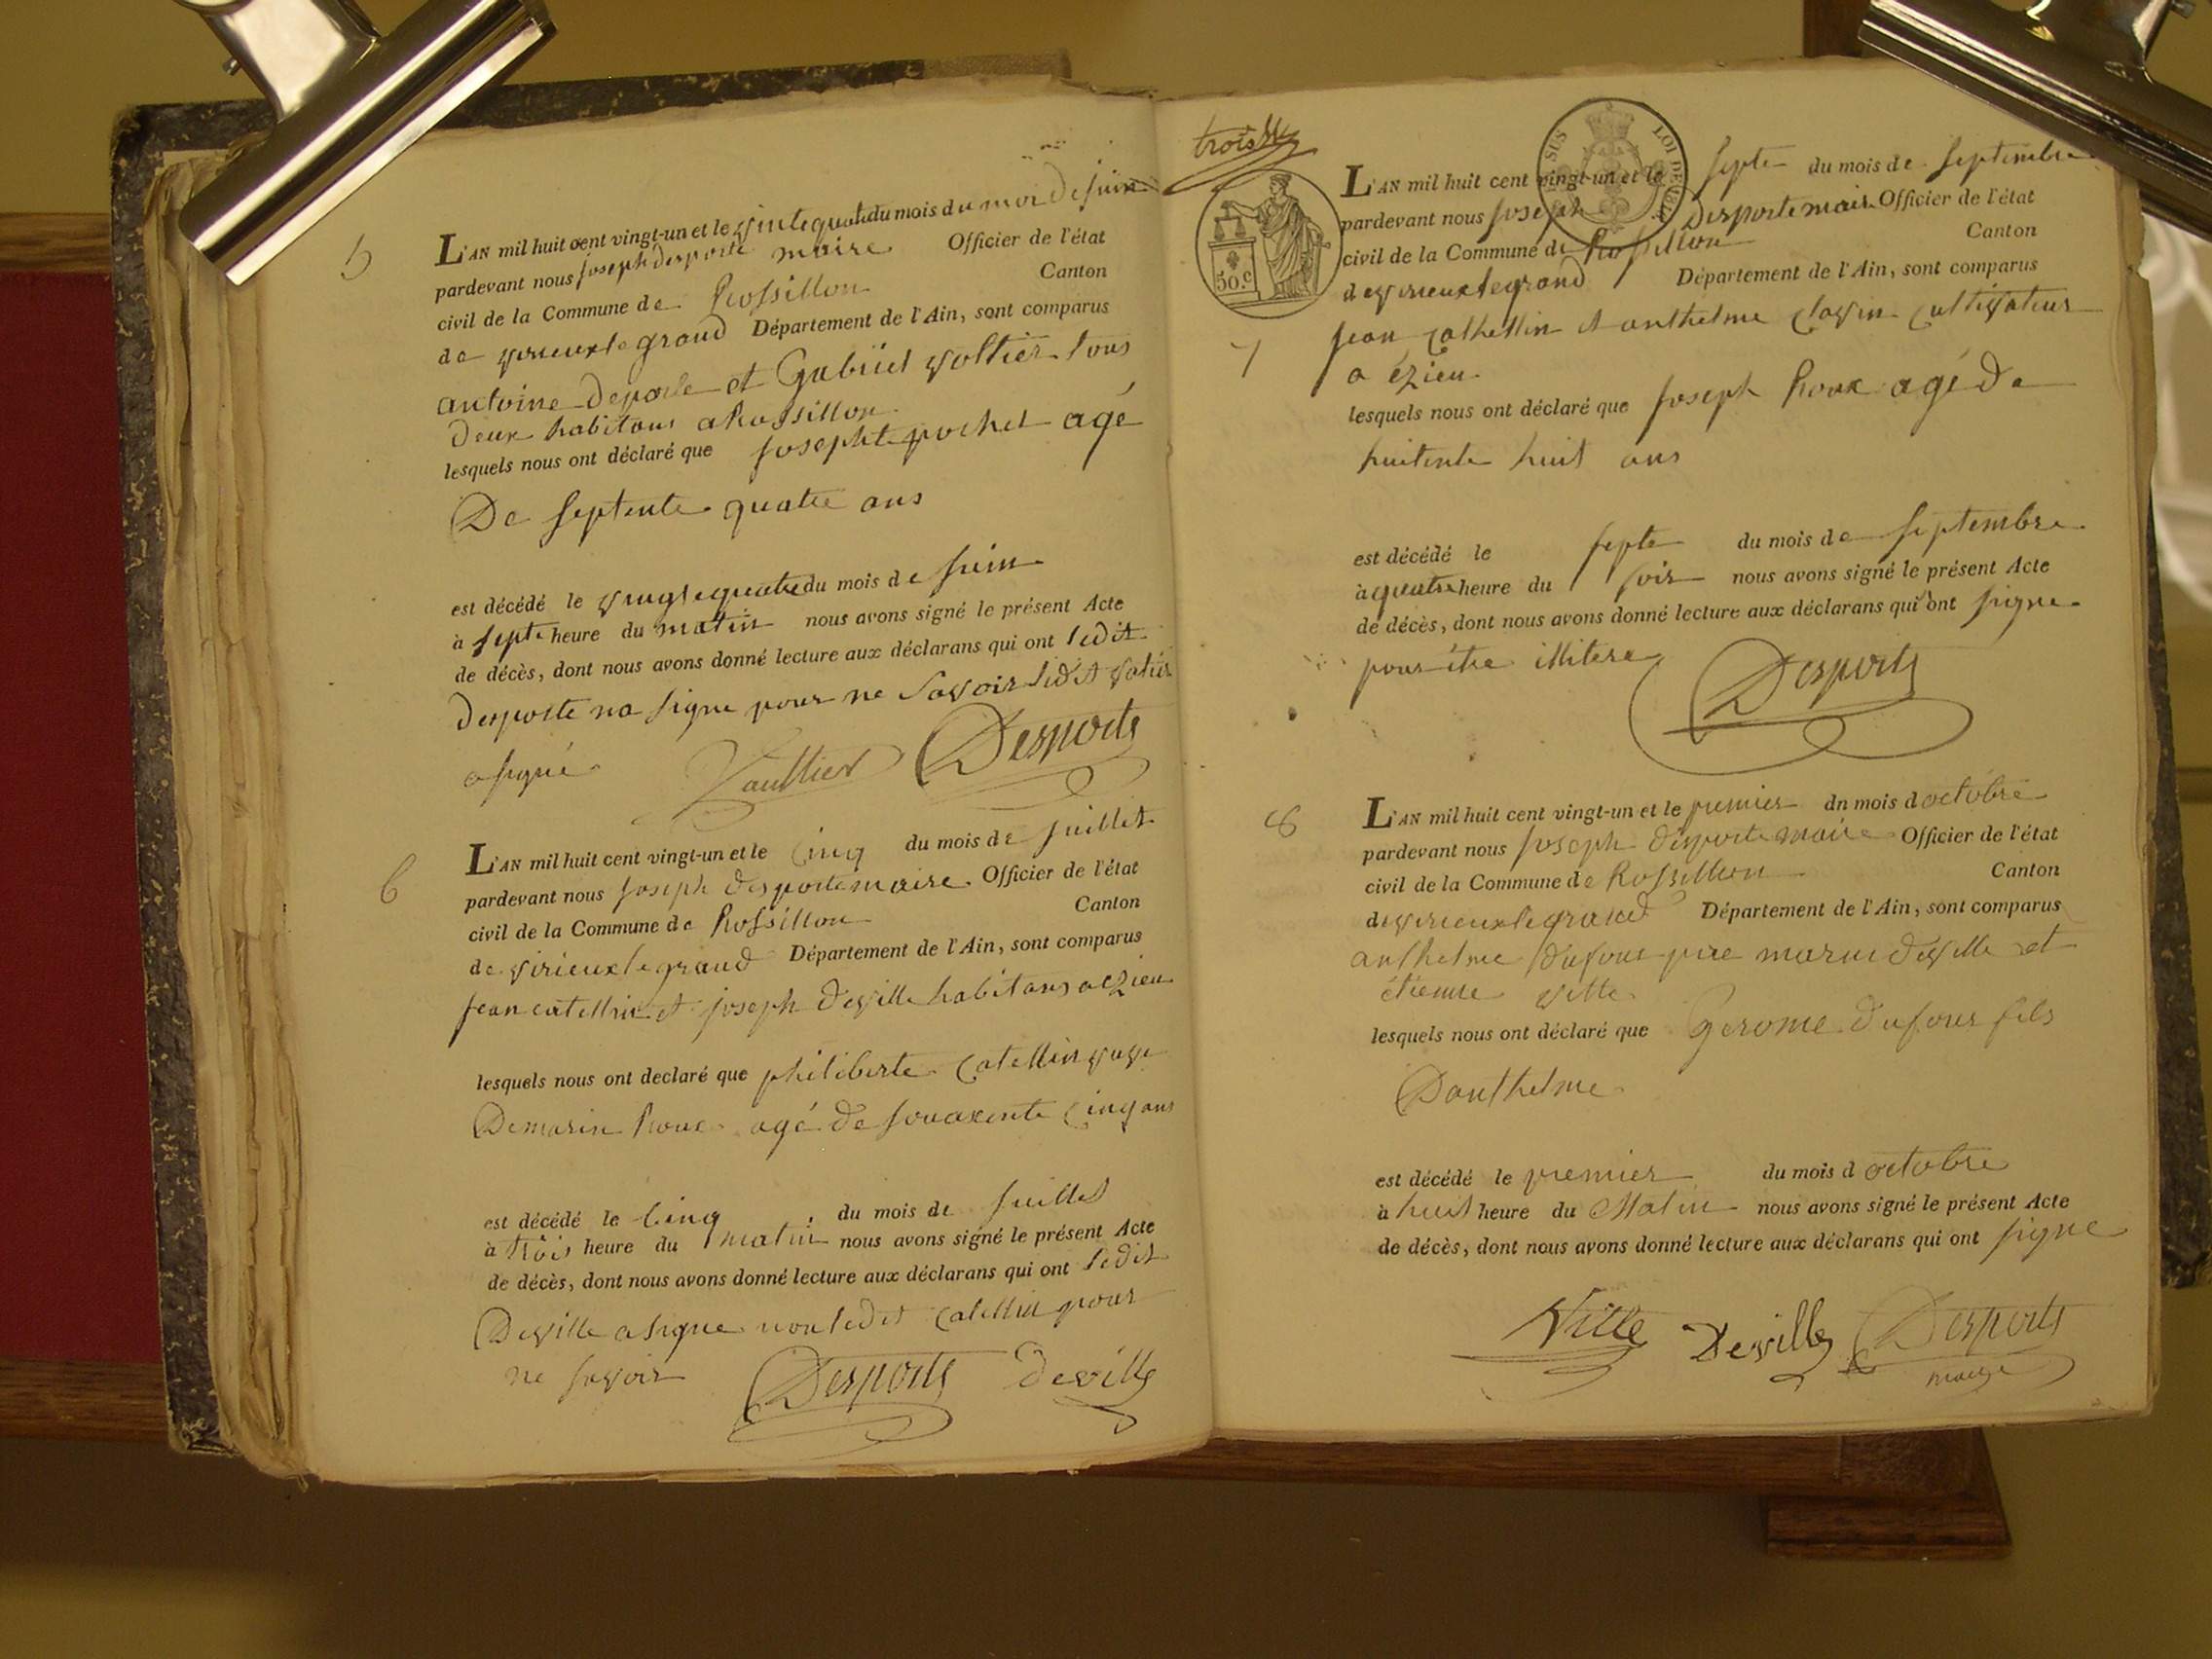 5
L'AN mil huit cent vingt-un et le vintequatre du mois du moi de juin
pardevant nous joseph desporte maire Officier de l'état
civil de la Commune de Rossillon Canton
de virieux le grand Département de l'Ain, sont comparus
antoine deporte et Gabriel voltier tous
deux habitans a Rossillon
lesquels nous ont déclaré que josephte pochet agé
De septente quatre ans
est décédé le vingtequatre du mois de juin
à septe heure du matin nous avons signé le présent Acte
de décès, dont nous avons donné lecture aux déclarans qui ont ledit
desporte na signe pour ne savoir ledit votier
a signé
Vaulttier Desports
6
L'AN mil huit cent vingt-un et le cinq du mois de juillet
pardevant nous joseph desporte maire Officier de l'état
civil de la Commune de Rossillon Canton
de virieux le grand Département de l'Ain, sont comparus
jean catellin et joseph deville habitans a ezieu
lesquels nous ont declaré que philiberte catellin veuve
De marin Roux agé de souaxente cinq ans
est décédé le cinq du mois de juillet
à trois heure du matin nous avons signé le présent Acte
de décès, dont nous avons donné lecture aux déclarans qui ont ledit
Deville a signe non ledit catellin pour
ne savoir Desports deville
trois
SUS LOI DE
50.c
L'AN mil huit cent vingt-un et le septe du mois de septembre
pardevant nous joseph Desporte maire Officier de l'état
civil de la Commune de Rossillon Canton
de virieux le grand Département de l'Ain, sont comparus
7
jean cathellin et anthelme clavin cultivateur
a ézieu
lesquels nous ont déclaré que joseph Roux agé de
huitente huit ans
est décédé le septe du mois de septembre
à quatre heure du soir nous avons signé le présent Acte
de décès, dont nous avons donné lecture aux déclarans qui ont signe
pour être illitere Desports
8
L'AN mil huit cent vingt-un et le premier dn mois d octobre
pardevant nous joseph desporte maire Officier de l'état
civil de la Commune de Rossillon Canton
de virieux le grand Département de l'Ain, sont comparus
anthelme dufour pere deville et
étienne ville
lesquels nous ont déclaré que Gerome dufour fils
Danthelme
est décédé le premier du mois d octobre
à huit heure du Matin nous avons signé le présent Acte
de décès, dont nous avons donné lecture aux déclarans qui ont signe
Ville Deville Desports
maire